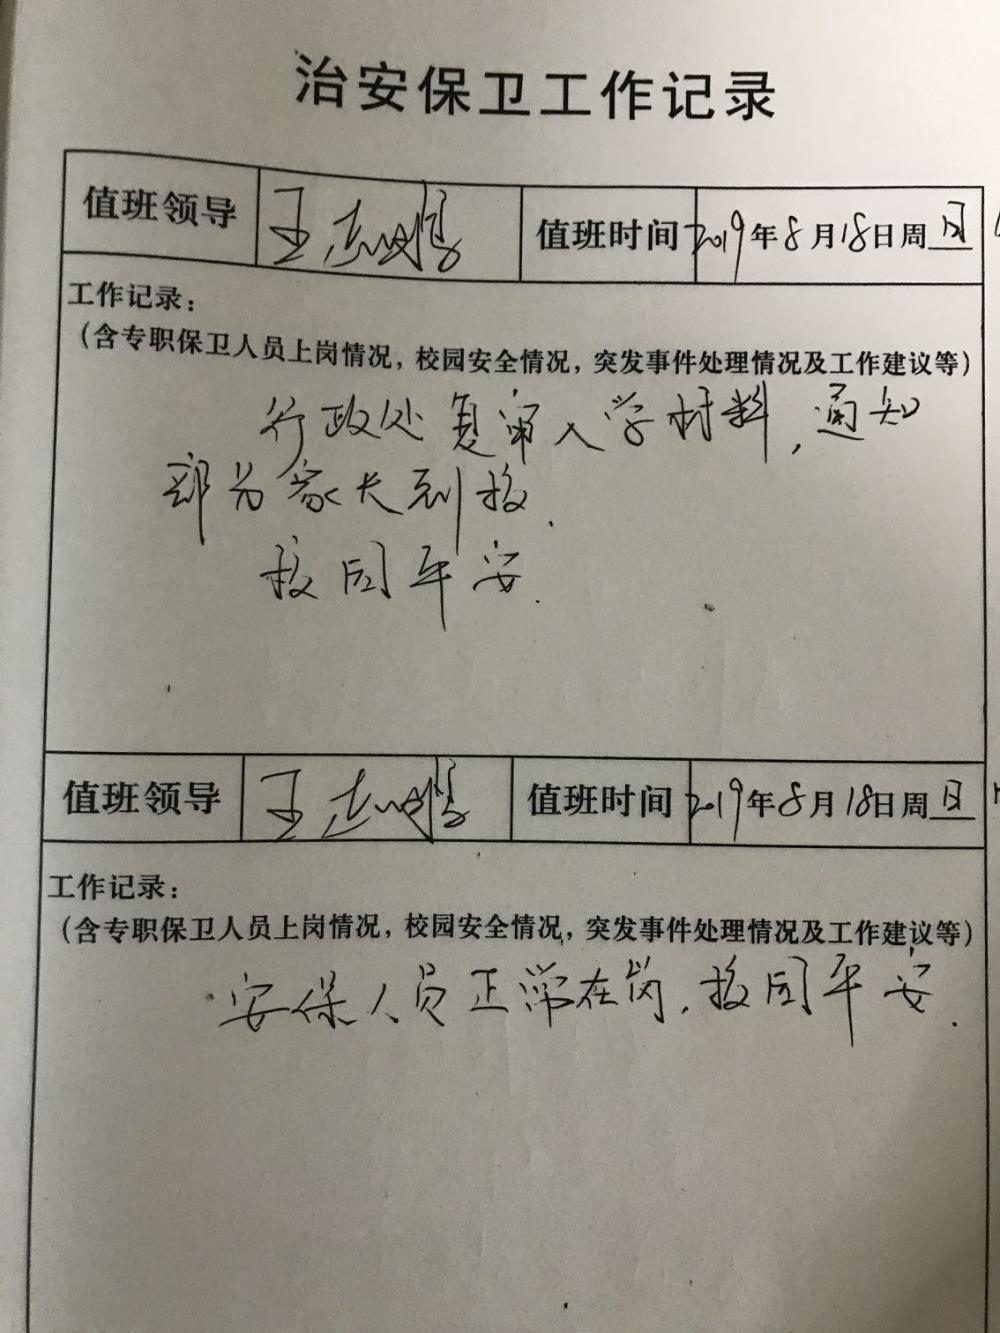 治安保卫工作记录
值班领导 王志 值班时间 2019年8月18日周日
工作记录：
（含专职保卫人员上岗情况，校园安全情况，突发事件处理情况及工作建议等）
行政处复审入学材料，通知
部分家长到校.
校园平安.
值班领导 王志 值班时间 2019年8月18日周日
工作记录：
（含专职保卫人员上岗情况，校园安全情况，突发事件处理情况及工作建议等）
安保人员正常在岗，校园平安.